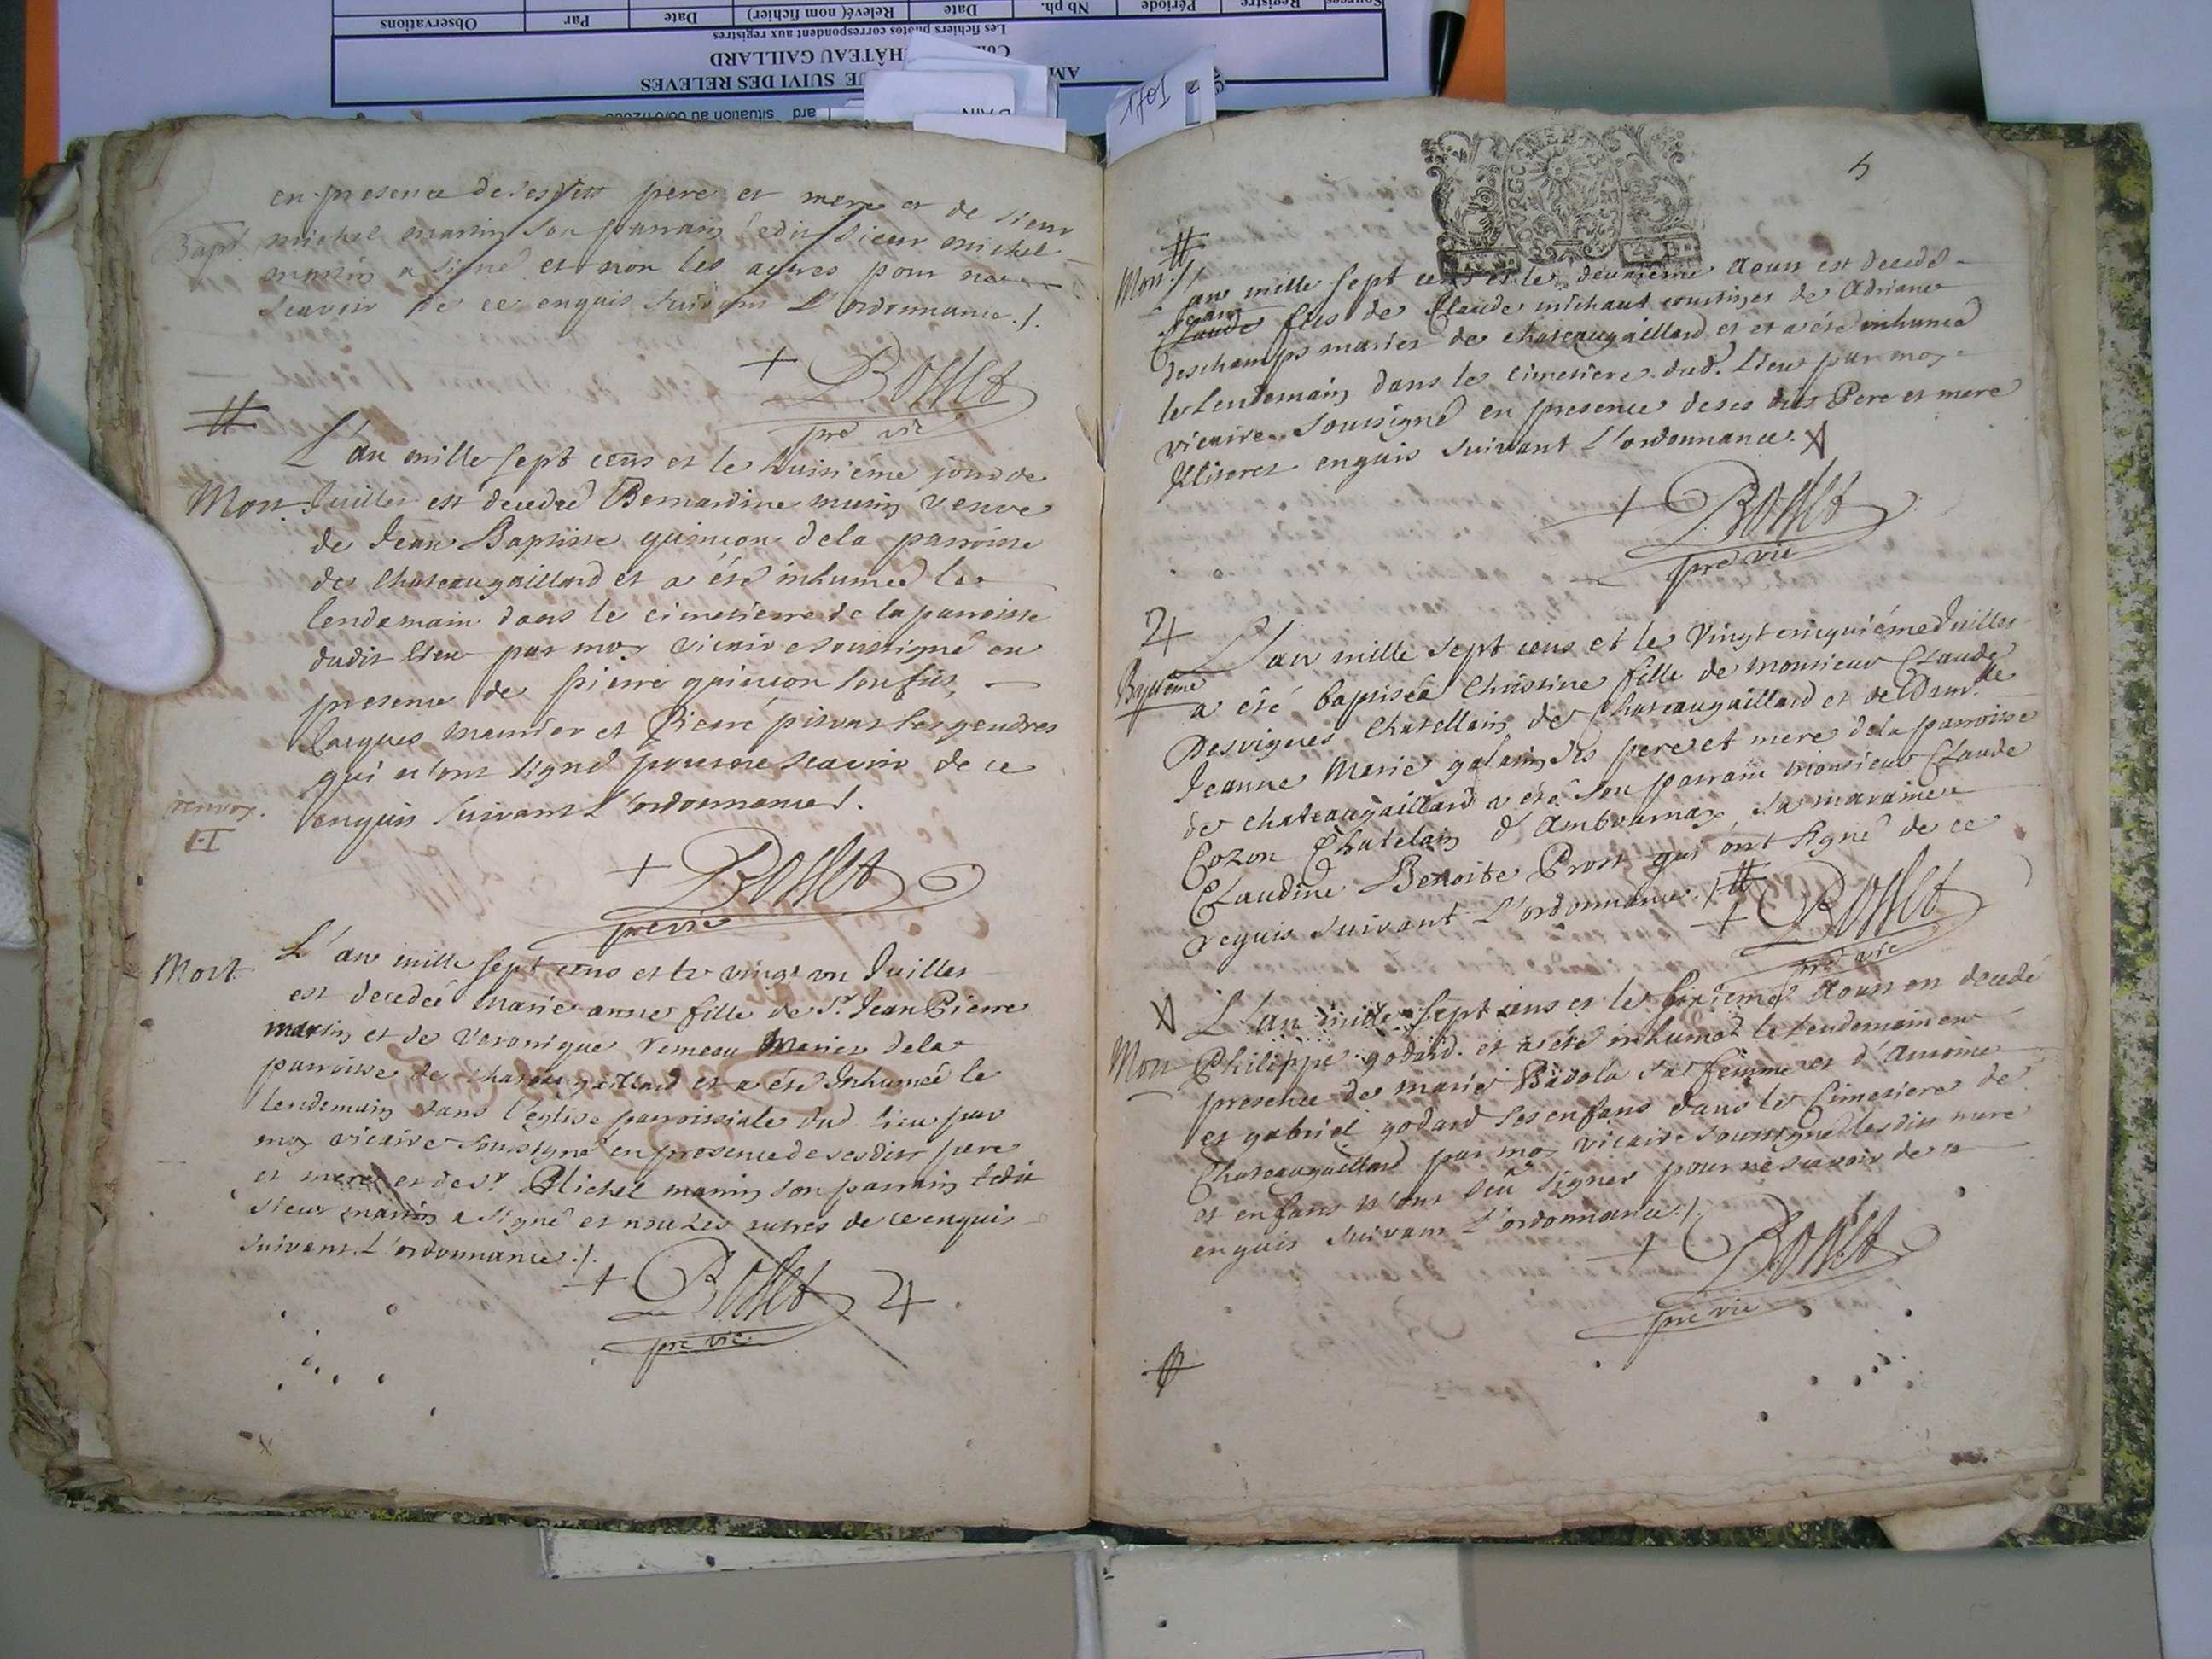 Observations
Par
Date
Relevé (nom fichier)
Date
Nb ph.
Période
Registre
Les fichiers photos correspondent aux registres
CHÂTEAU GAILLARD
SUIVI DES RELEVES
situation au
1701
en presence de sesdits pere et mere et de sieur
Bapt. michel marin son parrain ledit sieur michel
marin a signé et non les autres pour ne
scavoir de ce enquis suivant L'ordonnance ./.
+ Bosset
pre vic
L'an mille sept cens et le huisiéme jour de
Mort Juillet est decedeé Bernardine musin veuve
de Jean Baptiste guinson dela parroisse
de Chateaugaillard et a été inhumeé le
lendemain dans le cimetierre de la parroisse
dudit lieu par moy vicaire soussigné en
presence de pierre guinson son fils,
Jacques meunier et Pierre pisvat ses gendres
qui n'ont signé pour ne scavoir de ce
enquis suivant L'ordonnance /.
renvoy.
+ Bosset
pre vic
Mort L'an mille sept cens et le vingt un Juillet
est decedeé marie anne fille de Sr. Jean Pierre
marin et de veronique remeau mariés dela
parroisse de chateaugaillard et a été Inhumeé le
lendemain dans l'eglise parroissiale dud. lieu par
moy vicaire soussigné en presence de sesdits pere
et mere et de Sr. Michel marin son parrain ledit
sieur marin a signé et non les autres de ce enquis
suivant L'ordonnance ./.
+ Bosset
pre vic
5
Mort L'an mille sept cens et le deuxieme Aoust est decedé
jean
Claude fils de Claude michaut coustizer de Adriane
deschamps mariés de chateaugaillard et et a été inhumé
le lendemain dans le cimetiere dud. Lieu par moy
vicaire soussigné en presence de ses dits Pere et mere
Illiterez enquis suivant L'ordonnance.
+ Bosset
pre vic
L'an mille sept cens et le vingt cinquiéme Juillet
Bapteme a été baptiseé Christine fille de monsieur Claude
Desvignes Chatellain de Chateaugaillard et de Dam.lle
Jeanne Marie galain ses pere et mere dela parroisse
de chateaugaillard a été son parrain monsieur Claude
Cozon Chatelain d'Ambournay, sa maraine
Claudine Benoite Prost qui ont signé de ce
requis suivant L'ordonnance ./.
+ Bosset
pre vic
L'an mille sept cens et le sixieme Aoust est decedé
Mort Philippe godard et a été inhumé le lendemain en
presence de marie Badola sa femme et d'Antoine
et gabriel godard ses enfans dans le Cimetiere de
Chateaugaillard par moy vicaire soussigné lesdits mere
et enfans n'ont seu signer pour ne scavoir de ce
enquis suivant L'ordonnance ./.
+ Bosset
pre vic